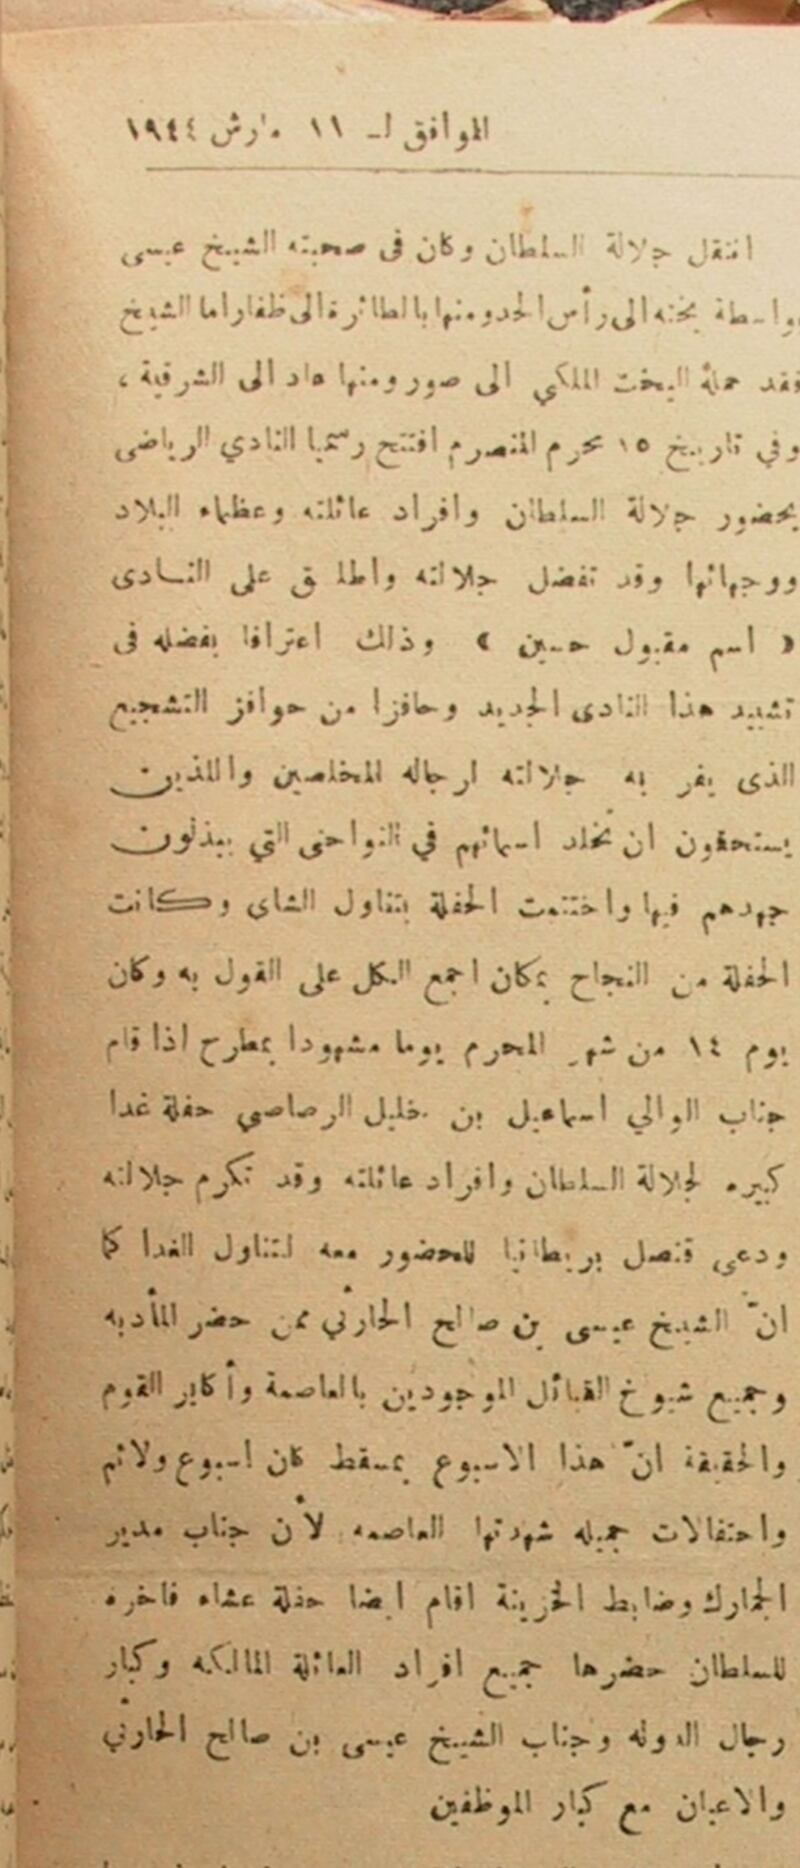 الموافق لـ ١١ مارش ١٩٤٤
انتقل جلالة السلطان وكان فى صحبته الشيخ عيسى
بواسطة يخته الى رأس الحد ومنها بالطائرة الى ظفار اما الشيخ
فقد حمله اليخت الملكي الى صور ومنها عاد الى الشرقية ،
وفي تاريخ ١٥ محرم المنصرم افتتح رسميا النادي الرياضى
بحضور جلالة السلطان وافراد عائلته وعظماء البلاد
ووجهائها وقد تفضل جلالته واطلق على النادى
« اسم مقبول حسين » وذلك اعترافا بفضله فى
تشييد هذا النادى الجديد وحافزا من حوافز التشجيع
الذى يفر به جلالته ارجاله المخلصين واللذين
يستحقون ان تخلد اسمائهم في النواحى التي يبذلون
جهدهم فيها واختتمت الحفلة بتناول الشاى وكانت
الحفلة من النجاح بمكان اجمع الكل على القول به وكان
يوم ١٤ من شهر المحرم يوما مشهودا بمطرح اذا قام
جناب الوالي اسماعيل بن خليل الرصاصي حفلة غدا
كبيره لجلالة السلطان وافراد عائلته وقد تكرم جلالته
ودعى قنصل بريطانيا للحضور معه لتناول الغدا كما
انّ الشيخ عيسى بن صالح الحارثي ممن حضر المأدبه
وجميع شيوخ القبائل الموجودين بالعاصمة وأكابر القوم
والحقيقة انّ هذا الاسبوع بمسقط كان اسبوع ولائم
واحتفالات جميله شهدتها العاصمه لأن جناب مدير
الجمارك وضابط الخزينة اقام ايضا حفلة عشاء فاخره
للسلطان حضرها جميع افراد العائلة المالكه وكبار
رجال الدوله وجناب الشيخ عيسى بن صالح الحارثي
والاعيان مع كبار الموظفين